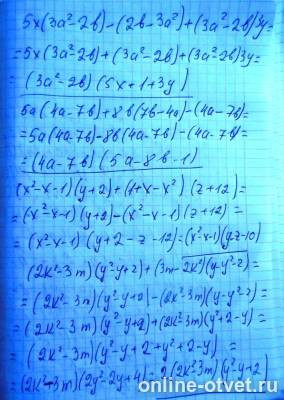 5x(3a²-2в)-(2в-3a²)+(3a²-2в)3y=
=5x(3a²-2в)+(3a²-2в)+(3a²-2в)3y=
=(3a²-2в)(5x+1+3y)
5a(4a-7в)+8в(7в-4a)-(4a-7в)=
=5a(4a-7в)-8в(4a-7в)-(4a-7в)=
=(4a-7в)(5a-8в-1)
(x²-x-1)(y+2)+(1+x-x²)(z+12)=
=(x²-x-1)(y+2)-(x²-x-1)(z+12)=
=(x²-x-1)(y+2-z-12)=(x²-x-1)(y-z-10)
(2k²-3m)(y²-y+2)+(3m-2k²)(y-y²-2)=
=(2k²-3m)(y²-y+2)-(2k²-3m)(y-y²-2)=
=(2k²-3m)(y²-y+2)+(2k²-3m)(y²+2-y)=
=(2k²-3m)(y²-y+2+y²+2-y)=
=(2k²-3m)(2y²-2y+4)=2(2k²-3m)(y²-y+2)
online-otvet.ru